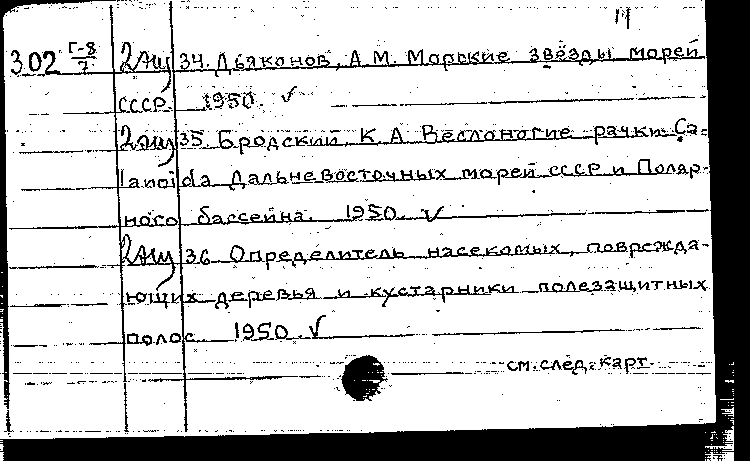 11
302 Г-8/7 2 34. Дьяконов, А. М. Морские звёзды морей
СССР. 1950. ✓
2 35. Бродский, К. А. Веслоногие рачки Ca-
lanoida Дальневосточных морей СССР и Поляр-
ного бассейна. 1950. ✓
2 36. Определитель насекомых, поврежда-
ющих деревья и кустарники полезащитных
полос. 1950. ✓
см. след. карт.